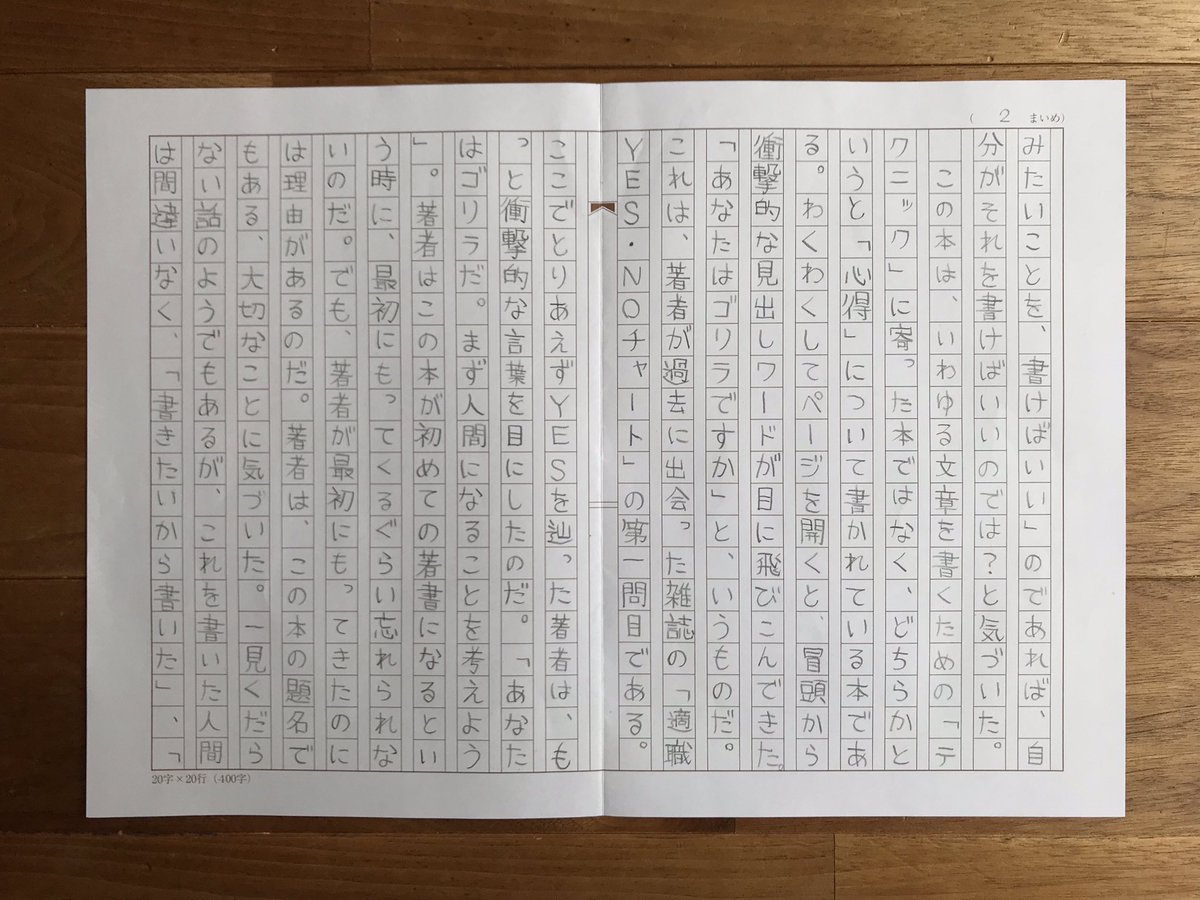 ( 2 まいめ)
みたいことを、書けばいい」のであれば、自
分がそれを書けばいいのでは?と気づいた。
この本は、いわゆる文章を書くための「テ
クニック」に寄った本ではなく、どちらかと
いうと「心得」について書かれている本であ
る。わくわくしてページを開くと、冒頭から
衝撃的な見出しワードが目に飛びこんできた。
「あなたはゴリラですか」と、いうものだ。
これは、著者が過去に出会った雑誌の「適職
YES・NOチャート」の第一問目である。
ここでとりあえずYESを辿った著者は、も
っと衝撃的な言葉を目にしたのだ。「あなた
はゴリラだ。まず人間になることを考えよう
」。著者はこの本が初めての著書になるとい
う時に、最初にもってくるぐらい忘れられな
いのだ。でも、著者が最初にもってきたのに
は理由があるのだ。著者は、この本の題名で
もある、大切なことに気づいた。一見くだら
ない話のようでもあるが、これを書いた人間
は間違いなく、「書きたいから書いた」、「
20字×20行(400字)